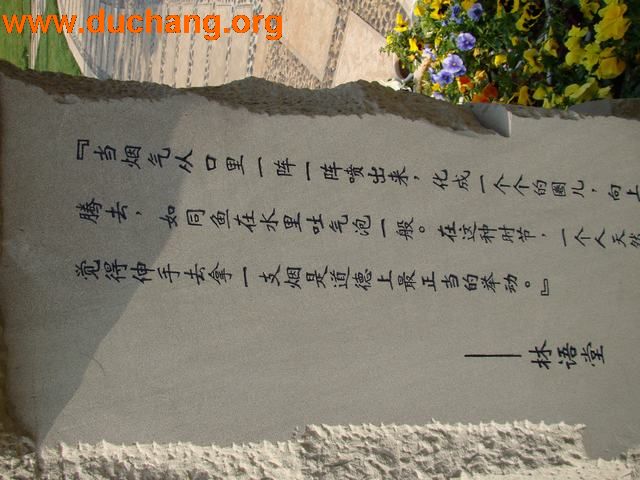 www.duchang.org
『当烟气从口里一阵一阵喷出来，化成一个个的圈儿，向上
腾去，如同鱼在水里吐气泡一般。在这种时节，一个人天然
觉得伸手去拿一支烟是道德上最正当的举动。』
——林语堂